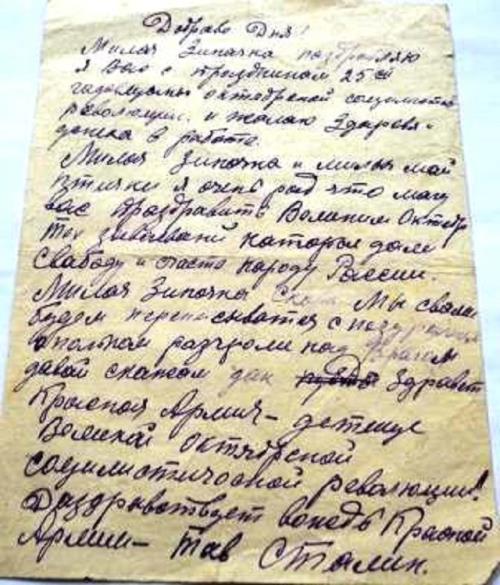 Добраво Дня!
Милая Зиночка поздровляю
я Вас с праздником 25ой
годовщины октябрской социлисти
революции. и жалаю Здоровя-
успеха в работе.
Милая Зиночка и милыи мои
птички я очень рад что магу
вас праздравить Великим Октебр
тех завиваний которые дали
свабоду и счасте народу России.
Милая Зиночка скоро мы свами
будем переписыватся с поздр
о полном разгроми над врагом
давай скажом дак здравст
Красная Армия - детище
Великай октябрской
социлистичоской революции!
Даздравствует вождь Красной
Армии - тов Сталин.